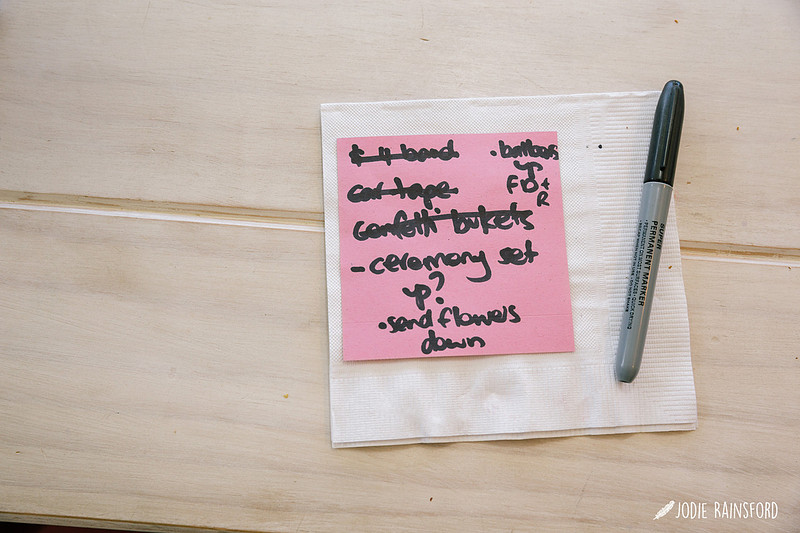 $ 4 band
car tape
confetti bukets
- ceremony set
up?
• send flowers
down
• balloons
up
FD +
R
SUPER
PERMANENT MARKER
JODIE RAINSFORD